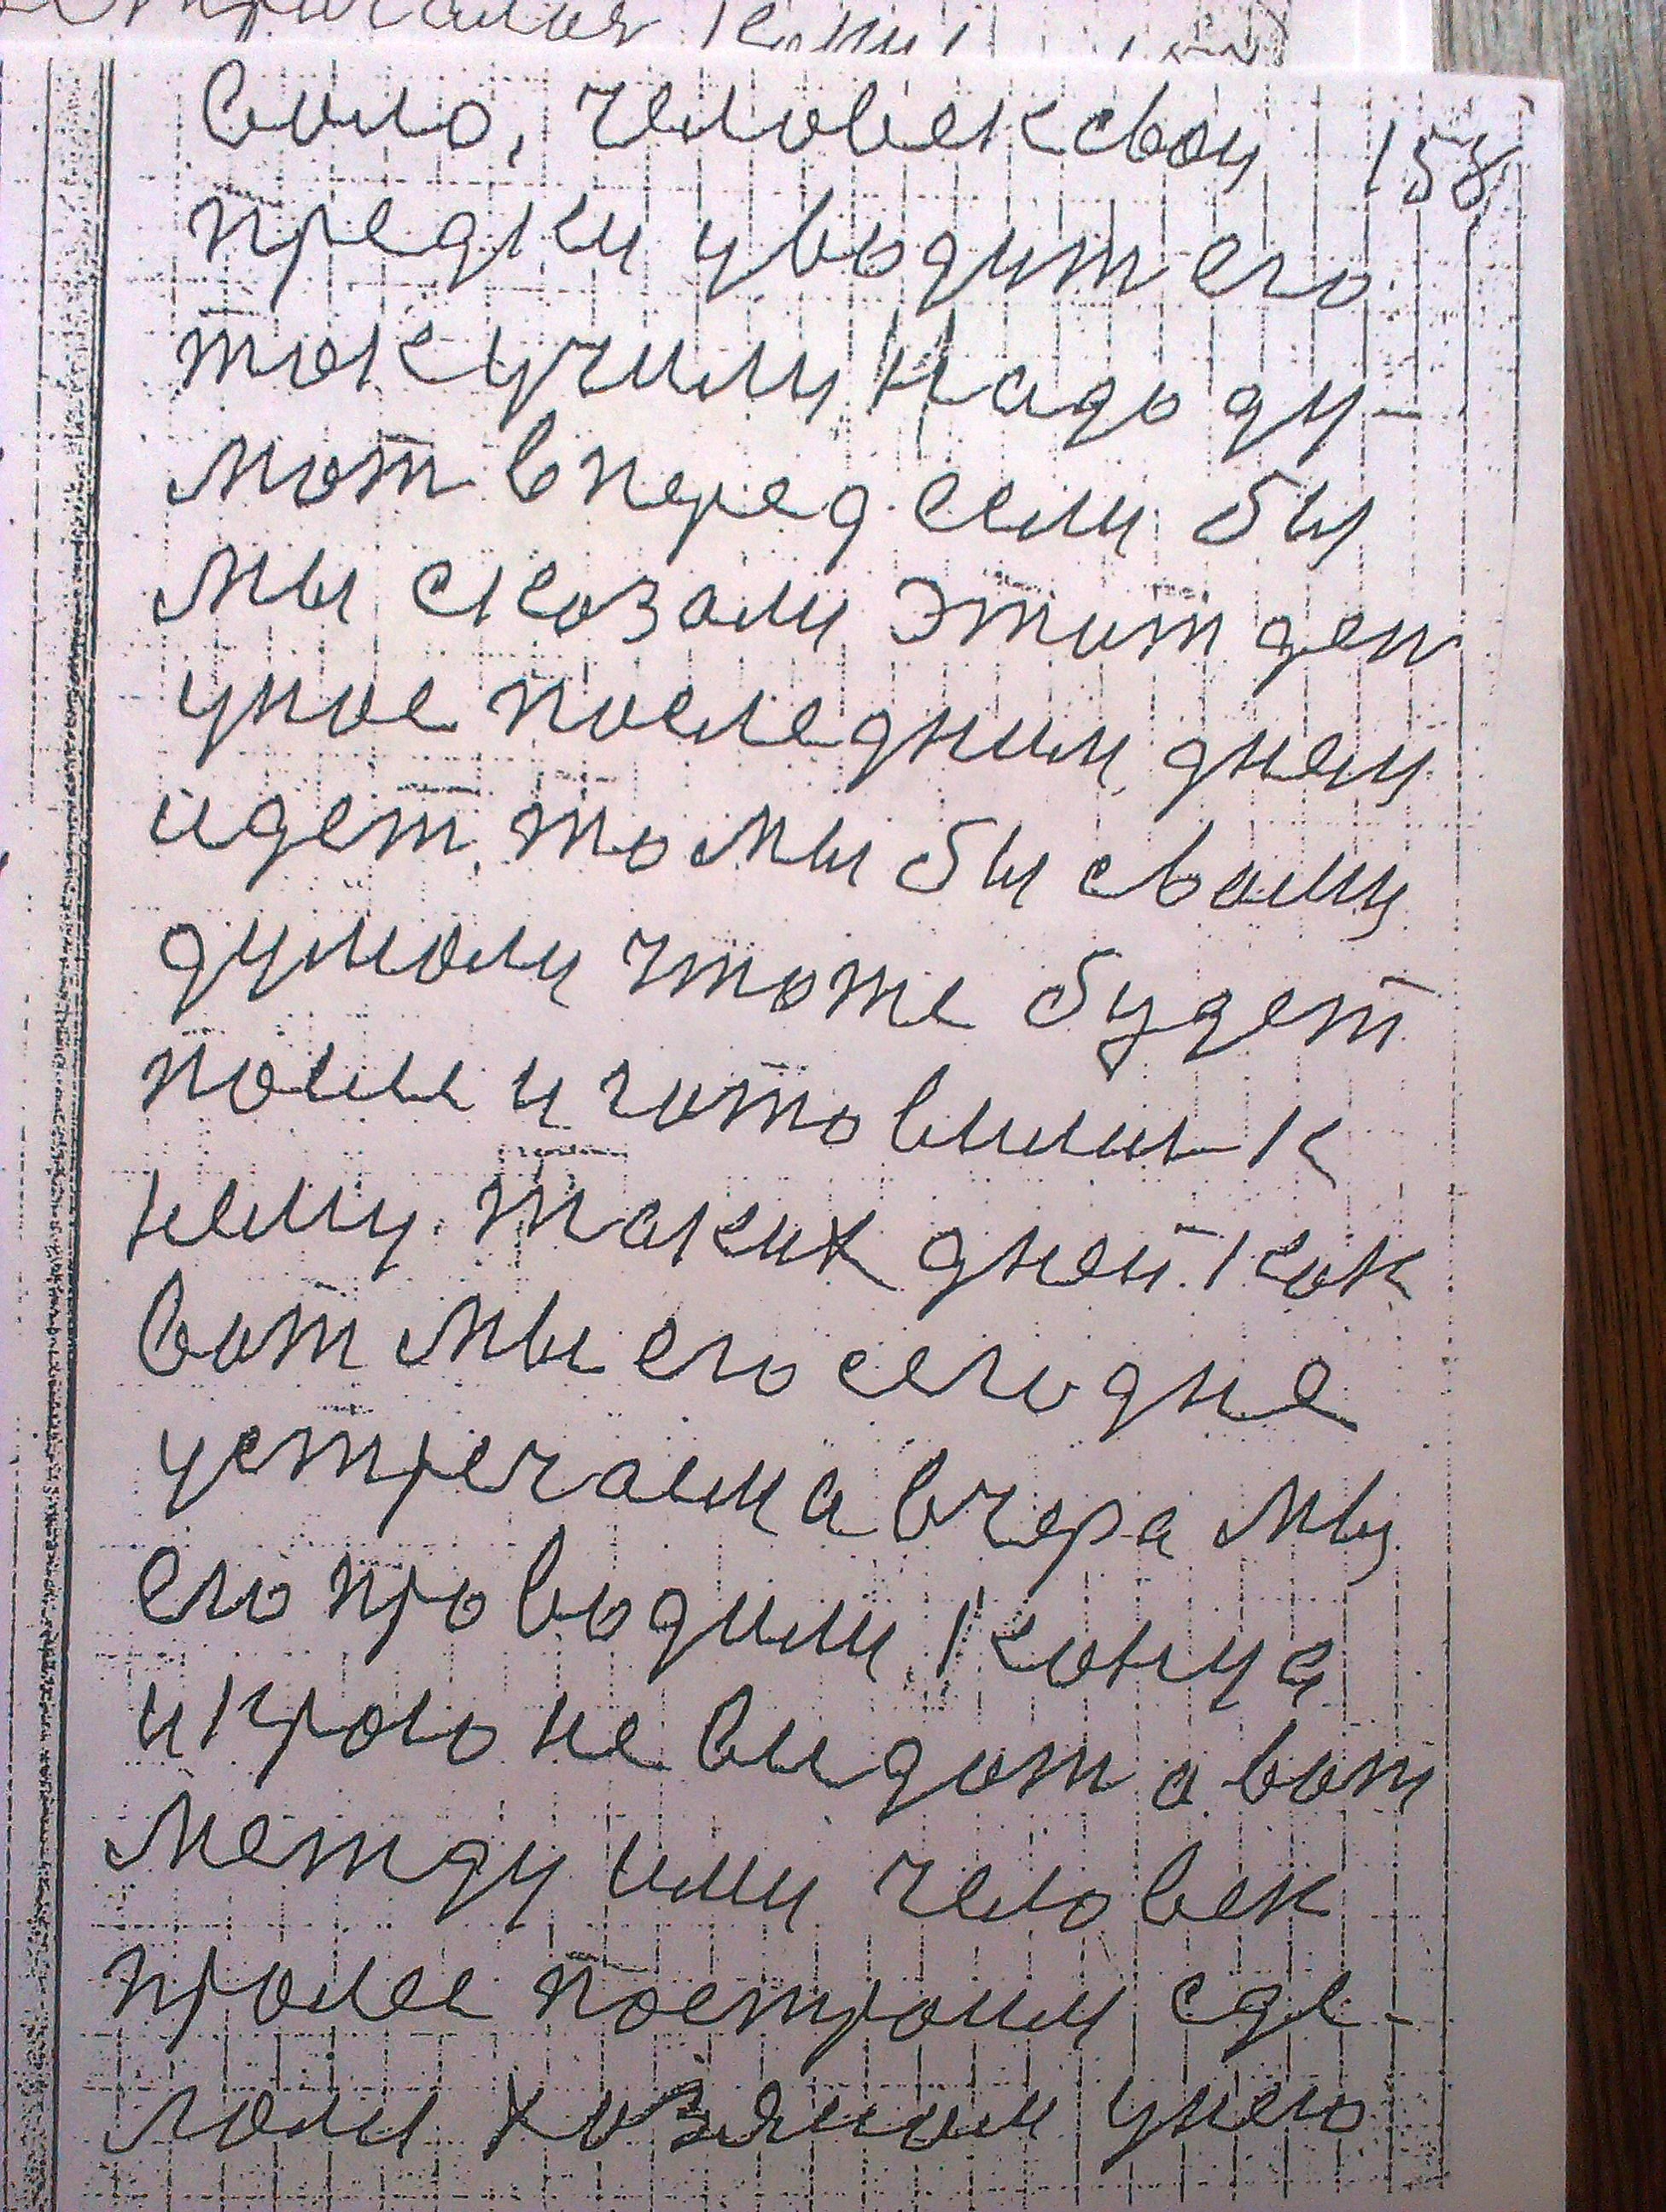 вило, человек свои 158
предки увводит его
такучили Надо ду-
мат вперед если бы
мы сказали этит ден
унас последним днем
идет то мы бы свами
думали чтоже будет
посли и готовились к
нему. Таких дней как
вот мы его сегодне
устречаем а вчера мы
его проводили. Конца
и краю не видат а вот
между ими человек
пралес построили сде-
лали хозяином унего